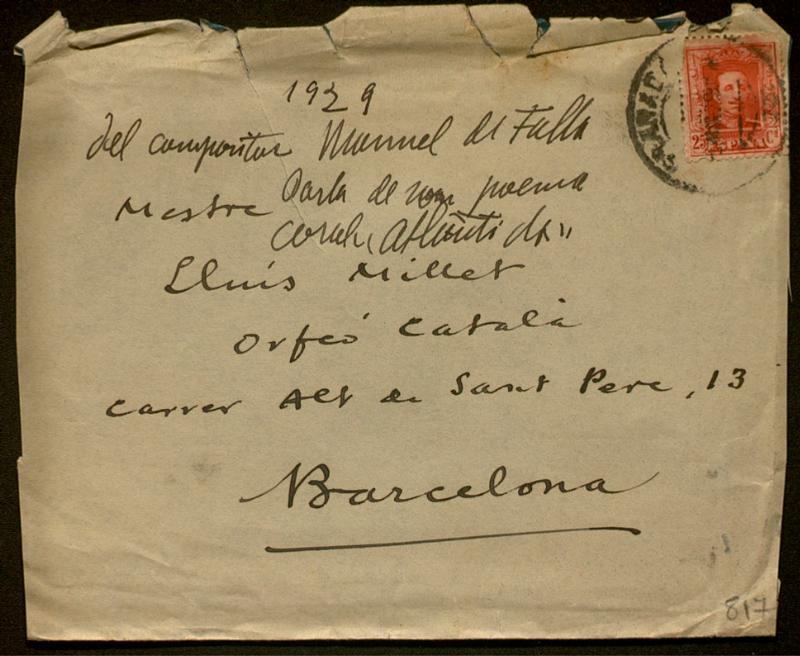 1929
del compositor Manuel de Falla
Parla de son poema
Mestre
coral "Atlàntida"
Lluís Millet
Orfeó Català
Carrer Alt de Sant Pere, 13
Barcelona
GRANADA
25 Cs
817